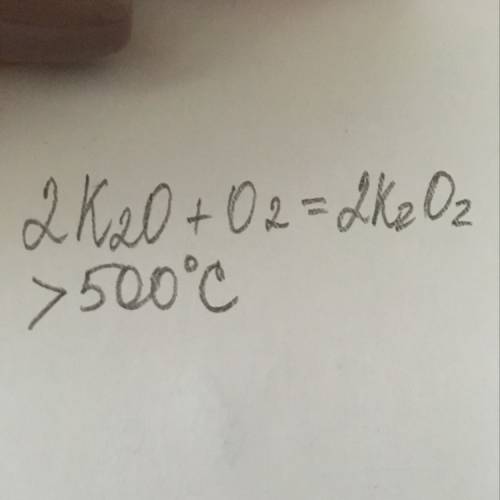 2K₂O + O₂ = 2K₂O₂
>500°C